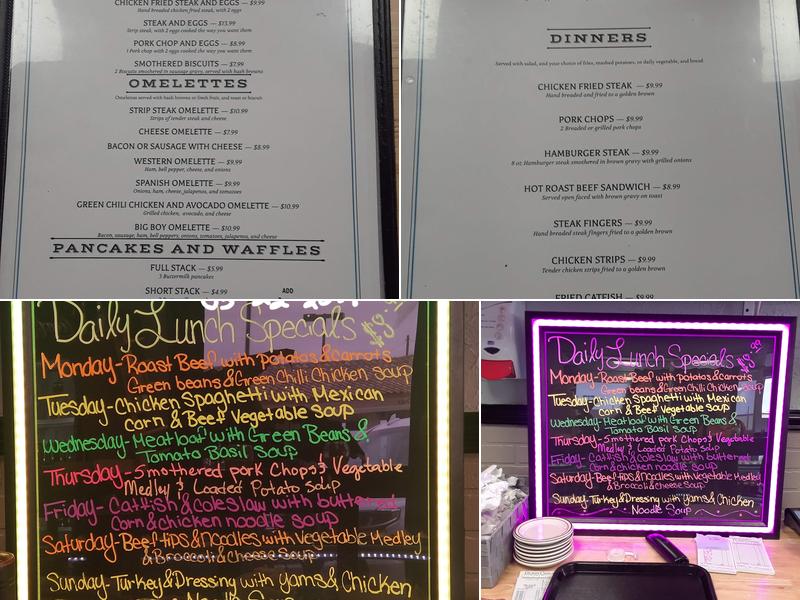 CHICKEN FRIED STEAK AND EGGS — $9.99
Hand breaded chicken fried steak, with 2 eggs
STEAK AND EGGS — $13.99
Strip steak, with 2 eggs cooked the way you want them
PORK CHOP AND EGGS — $8.99
1 Pork chop with 2 eggs cooked the way you want them
SMOTHERED BISCUITS — $7.99
2 Biscuits smothered in sausage gravy, served with hash browns
OMELETTES
Omelettes served with hash browns or fresh fruit, and toast or biscuit
STRIP STEAK OMELETTE — $10.99
Strips of tender steak and cheese
CHEESE OMELETTE — $7.99
BACON OR SAUSAGE WITH CHEESE — $8.99
WESTERN OMELETTE — $9.99
Ham, bell pepper, cheese, and onions
SPANISH OMELETTE — $9.99
Onions, ham, cheese, jalapenos, and tomatoes
GREEN CHILI CHICKEN AND AVOCADO OMELETTE — $10.99
Grilled chicken, avocado, and cheese
BIG BOY OMELETTE — $10.99
Bacon, sausage, ham, bell peppers, onions, tomatoes, jalapenos, and cheese
PANCAKES AND WAFFLES
FULL STACK — $5.99
3 Buttermilk pancakes
SHORT STACK — $4.99
ADD
DINNERS
Served with salad, and your choice of fries, mashed potatoes, or daily vegetable, and bread
CHICKEN FRIED STEAK — $9.99
Hand breaded and fried to a golden brown
PORK CHOPS — $9.99
2 Breaded or grilled pork chops
HAMBURGER STEAK — $9.99
8 oz Hamburger steak smothered in brown gravy with grilled onions
HOT ROAST BEEF SANDWICH — $8.99
Served open faced with brown gravy on toast
STEAK FINGERS — $9.99
Hand breaded steak fingers fried to a golden brown
CHICKEN STRIPS — $9.99
Tender chicken strips fried to a golden brown
FRIED CATFISH — $9.99
Daily Lunch Specials
Monday-Roast Beef with potatos & carrots
Green beans & Green Chilli Chicken soup
Tuesday-Chicken Spaghetti with Mexican
corn & Beef Vegetable soup
Wednesday-Meatloaf with Green Beans &
Tomato Basil Soup
Thursday-Smothered pork Chops & Vegetable
Medley & Loaded Potato Soup
Friday-Catfish & coleslaw with buttered
Corn & chicken noodle soup
Saturday-Beef tips & Noodles with vegetable Medley
& Broccoli & cheese Soup
Sunday-Turkey & Dressing with yams & Chicken
Noodle Soup
Daily Lunch Specials $9.99
Monday-Roast Beef with potatos & carrots
Green beans & Green Chilli Chicken soup
Tuesday-Chicken Spaghetti with Mexican
corn & Beef Vegetable soup
Wednesday-Meatloaf with Green Beans &
Tomato Basil Soup
Thursday-Smothered pork Chops & Vegetable
Medley & Loaded Potato Soup
Friday-Catfish & coleslaw with buttered
Corn & chicken noodle soup
Saturday-Beef tips & Noodles with vegetable Medley
& Broccoli & cheese Soup
Sunday-Turkey & Dressing with yams & Chicken
Noodle Soup